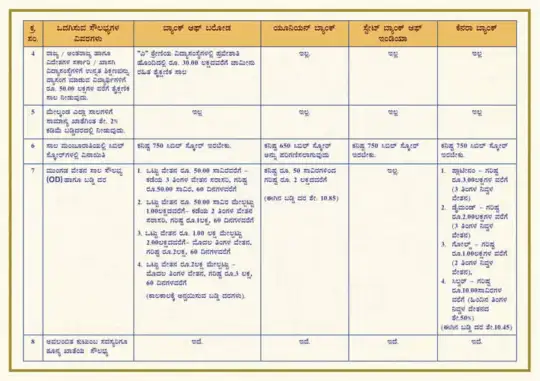 ಕ್ರ. ಸಂ.
ಒದಗಿಸುವ ಸೌಲಭ್ಯಗಳ
ವಿವರಗಳು
ಬ್ಯಾಂಕ್ ಆಫ್ ಬರೋಡ
ಯೂನಿಯನ್ ಬ್ಯಾಂಕ್
ಸ್ಟೇಟ್ ಬ್ಯಾಂಕ್ ಆಫ್
ಇಂಡಿಯಾ
ಕೆನರಾ ಬ್ಯಾಂಕ್
4
ರಾಜ್ಯ / ಅಂತರಾಜ್ಯ ಹಾಗೂ
ವಿದೇಶಗಳ ಸರ್ಕಾರಿ / ಖಾಸಗಿ
ವಿದ್ಯಾಸಂಸ್ಥೆಗಳಿಗೆ ಉನ್ನತ ಶಿಕ್ಷಣವನ್ನು
ವ್ಯಾಸಂಗ ಮಾಡುವ ವಿದ್ಯಾರ್ಥಿಗಳಿಗೆ
ರೂ. 50.00 ಲಕ್ಷಗಳ ವರೆಗೆ ಶೈಕ್ಷಣಿಕ
ಸಾಲ ನೀಡುವುದು.
"ಎ" ಶ್ರೇಣಿಯ ವಿದ್ಯಾಸಂಸ್ಥೆಗಳಲ್ಲಿ ಪ್ರವೇಶಾತಿ
ಹೊಂದಿದಲ್ಲಿ ರೂ. 30.00 ಲಕ್ಷದವರೆಗೆ ಜಾಮೀನು
ರಹಿತ ಶೈಕ್ಷಣಿಕ ಸಾಲ
ಇಲ್ಲ.
ಇಲ್ಲ
ಇಲ್ಲ
5
ಮೇಲ್ಕಂಡ ಎಲ್ಲಾ ಸಾಲಗಳಿಗೆ
ಸಾಮಾನ್ಯ ಖಾತೆಗಿಂತ ಶೇ. 2%
ಕಡಿಮೆ ಬಡ್ಡಿದರದಲ್ಲಿ ನೀಡುವುದು.
ಇಲ್ಲ
ಇಲ್ಲ
ಇಲ್ಲ
ಇಲ್ಲ
6
ಸಾಲ ಮಂಜೂರಾತಿಯಲ್ಲಿ ಸಿಬಿಲ್
ಸ್ಕೋರ್‌ಗಳಲ್ಲಿ ವಿನಾಯಿತಿ
ಕನಿಷ್ಠ 750 ಸಿಬಿಲ್ ಸ್ಕೋರ್ ಇರಬೇಕು.
ಕನಿಷ್ಠ 650 ಸಿಬಿಲ್ ಸ್ಕೋರ್
ಅನ್ನು ಪರಿಗಣಿಸಲಾಗುವುದು
ಕನಿಷ್ಠ 750 ಸಿಬಿಲ್ ಸ್ಕೋರ್
ಇರಬೇಕು.
ಕನಿಷ್ಠ 750 ಸಿಬಿಲ್ ಸ್ಕೋರ್
ಇರಬೇಕು.
7
ಮುಂಗಡ ವೇತನ ಸಾಲ ಸೌಲಭ್ಯ
(OD) ಹಾಗೂ ಬಡ್ಡಿ ದರ
1. ಒಟ್ಟು ವೇತನ ರೂ. 50.00 ಸಾವಿರದವರೆಗೆ -
ಕಡೆಯ 3 ತಿಂಗಳ ವೇತನ ಸರಾಸರಿ, ಗರಿಷ್ಠ
ರೂ.50.00 ಸಾವಿರ, 60 ದಿನಗಳವರೆಗೆ
2. ಒಟ್ಟು ವೇತನ ರೂ. 50.00 ಸಾವಿರ ಮೇಲ್ಪಟ್ಟು
1.00ಲಕ್ಷದವರೆಗೆ- ಕಡೆಯ 2 ತಿಂಗಳ ವೇತನ
ಸರಾಸರಿ, ಗರಿಷ್ಠ ರೂ.1ಲಕ್ಷ, 60 ದಿನಗಳವರೆಗೆ
3. ಒಟ್ಟು ವೇತನ ರೂ. 1.00 ಲಕ್ಷ ಮೇಲ್ಪಟ್ಟು
2.00ಲಕ್ಷದವರೆಗೆ- ಮೊದಲ ತಿಂಗಳ ವೇತನ,
ಗರಿಷ್ಠ ರೂ.2ಲಕ್ಷ, 60 ದಿನಗಳವರೆಗೆ
4. ಒಟ್ಟು ವೇತನ ರೂ.2ಲಕ್ಷ ಮೇಲ್ಪಟ್ಟು -
ಮೊದಲು ತಿಂಗಳ ವೇತನ, ಗರಿಷ್ಠ ರೂ.3 ಲಕ್ಷ,
60 ದಿನಗಳವರೆಗೆ
(ಕಾಲಕಾಲಕ್ಕೆ ಅನ್ವಯಿಸುವ ಬಡ್ಡಿ ದರಗಳು).
ಕನಿಷ್ಠ ರೂ. 50 ಸಾವಿರಗಳಿಂದ
ಗರಿಷ್ಠ ರೂ. 2 ಲಕ್ಷದವರೆಗೆ
(ಈಗಿನ ಬಡ್ಡಿ ದರ ಶೇ. 10.85)
ಇಲ್ಲ
1. ಪ್ಲಾಟಿನಂ - ಗರಿಷ್ಠ
ರೂ.3.00ಲಕ್ಷಗಳ ವರೆಗೆ
(3 ತಿಂಗಳ ನಿವ್ವಳ
ವೇತನ)
2. ಡೈಮಂಡ್ - ಗರಿಷ್ಠ
ರೂ.2.00ಲಕ್ಷಗಳ ವರೆಗೆ
(3 ತಿಂಗಳ ನಿವ್ವಳ
ವೇತನ)
3. ಗೋಲ್ಡ್ - ಗರಿಷ್ಠ
ರೂ.1.00ಲಕ್ಷಗಳ ವರೆಗೆ
(2 ತಿಂಗಳ ನಿವ್ವಳ
ವೇತನ),
4. ಸಿಲ್ವರ್ - ಗರಿಷ್ಠ
ರೂ.10.00ಸಾವಿರಗಳ
ವರೆಗೆ (ಹಿಂದಿನ ತಿಂಗಳ
ನಿವ್ವಳ ವೇತನದ
ಶೇ.50%)
(ಈಗಿನ ಬಡ್ಡಿ ದರ ಶೇ.10.45)
8
ಅವಲಂಬಿತ ಕುಟುಂಬ ಸದಸ್ಯರಿಗೂ
ಶೂನ್ಯ ಖಾತೆಯ ಸೌಲಭ್ಯ
ಇದೆ.
ಇದೆ.
ಇದೆ.
ಇದೆ.